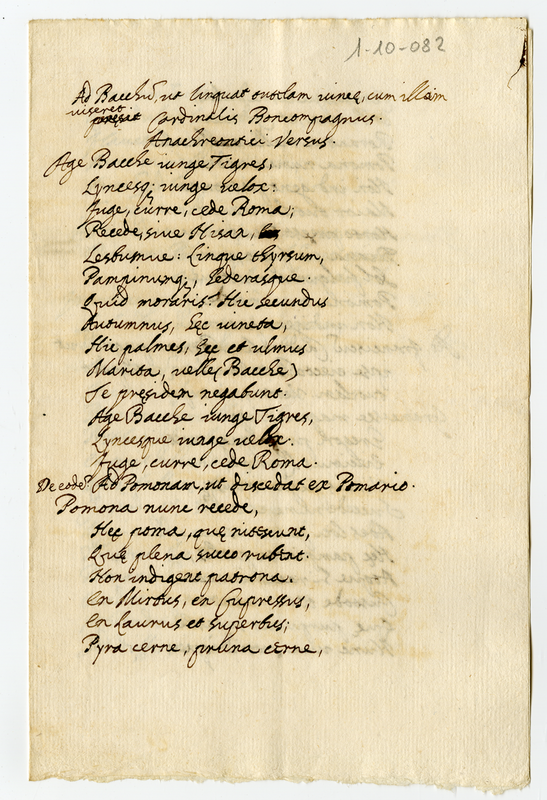 1-10-082
Ad Bacchū, ut linquat custodiam vineę, cum illam
viseret
Cardinalis Boncompagnus.
Anacreontici Versus.
Age Bacche iunge Tigres,
Lyncesq; iunge velox:
Fuge, curre, cede Roma;
Recede, sive Nisan,
Lesbumve: linque thyrsum,
Pampinumq;, hederasque.
Quid moraris? Hic secundus
Autumnus, hęc vineta,
Hic palmes, hęc et ulmus
Marita, velle (Bacche)
Te pręsidem negabunt.
Age Bacche iunge Tigres,
Lyncesque iunge velox.
Fuge, curre, cede Roma.
De eodē. Ad Pomonam, ut discedat ex Pomario.
Pomona nunc recede,
Hęc poma, quę nitescunt,
Quę plena succo rubent.
Non indigent patrona.
En Mirtus, en Cupressus,
En Laurus et superbus;
Pyra cerne, pruna cerne,